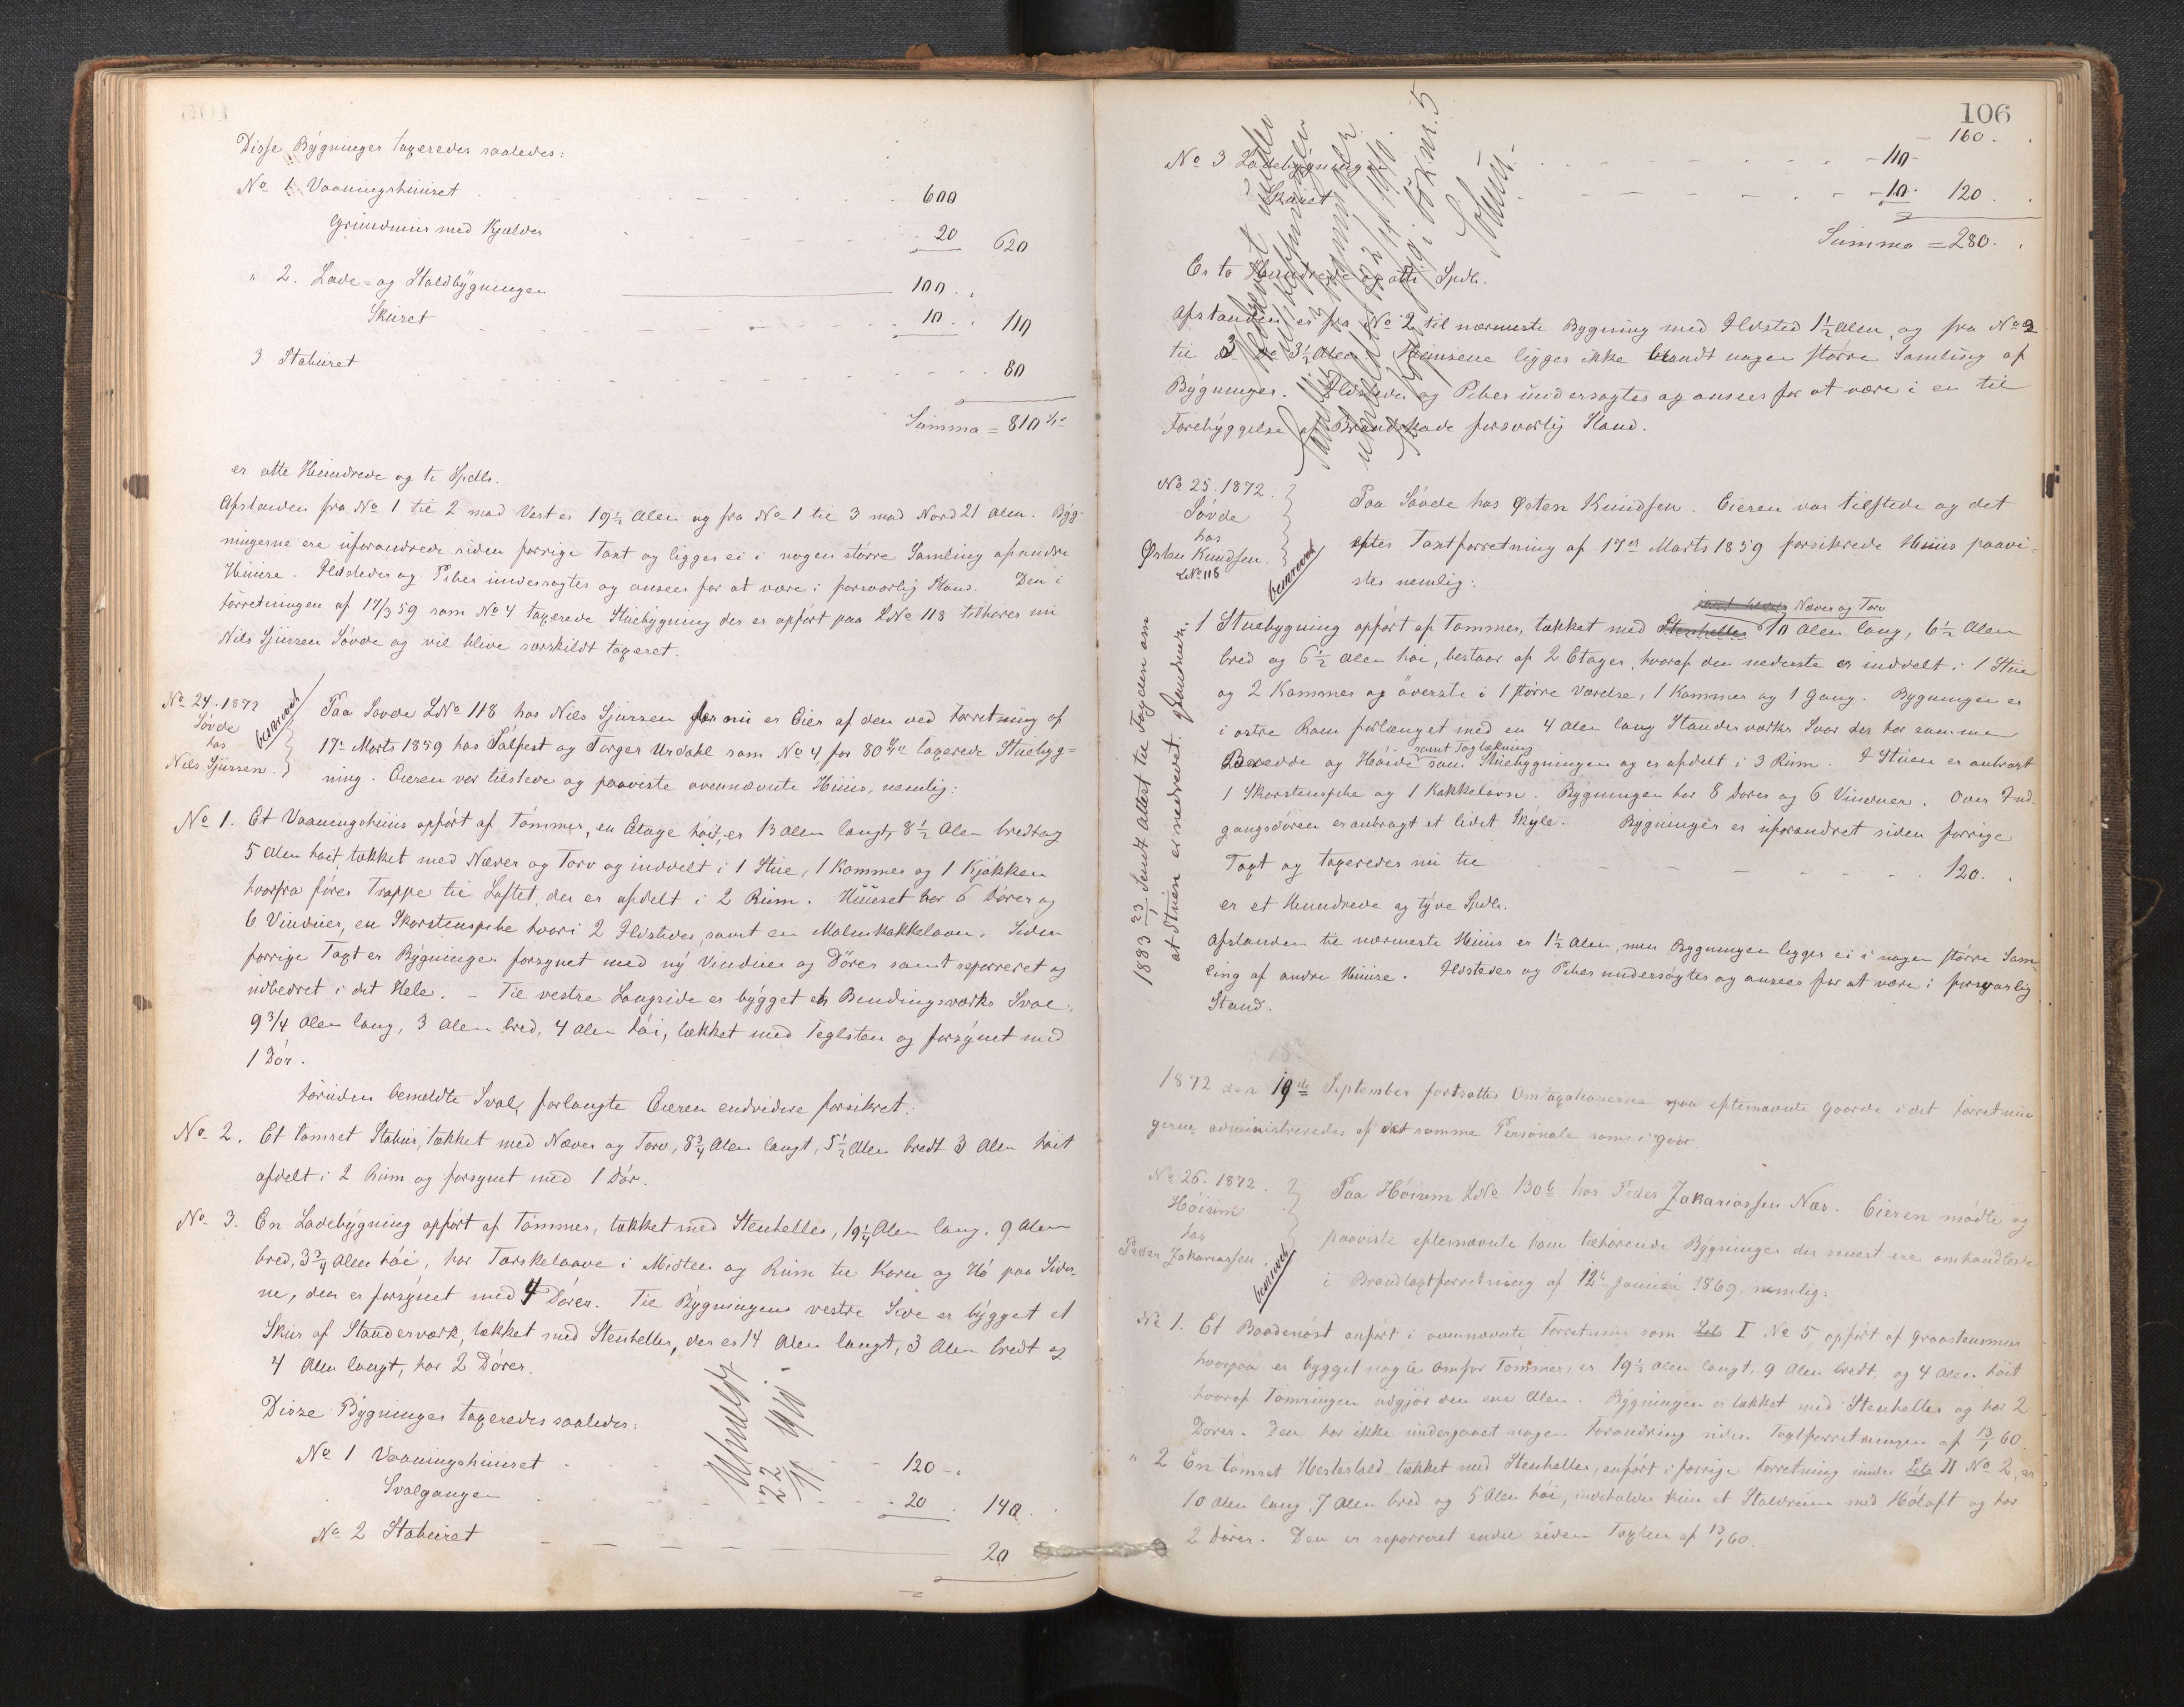 Disse Bygninger taxeredes saaledes:
No 1. Vaaningshuuset 600
Grundmuur med Kjælder 20 620
" 2. Lade- og Staldbygningen 100
Skuret 10 110
3 Staburet 80
Summa = 810
er otte Hundrede og ti Spdlr.
Afstanden fra No 1 til 2 mod Vest er 19½ Alen og fra No 1 til 3 mod Nord 21 Alen. Byg-
ningerne ere uforandrede siden forrige Taxt og ligger ei i nogen större Samling af andre
Huuse. Ildsteder og Piber undersøgtes og ansees for at være i forsvarlig Stand. Den i
Forretningen af 17/3 59 som No 4 taxerede Stuebygning der er opført paa LNo 118 tilhører nu
Nils Sjursen Sövde og vil blive særskildt taxeret.
No 24. 1872
Sövde
hos
Nils Sjursen.
beskrevet
Paa Sövde LNo 118 hos Nils Sjursen der nu er Eier af den ved Forretning af
17de Marts 1859 hos Salfest og Torger Urdahl som No 4 for 80 Spd taxerede Stuebyg-
ning. Eieren var tilstede og paaviste ovennævnte Huus, nemlig:
No 1. Et Vaaningshuus opført af Tömmer, en Etage höit, er 13 Alen langt, 8½ Alen bredt og
5 Alen höit, tækket med Næver og Torv og inddelt i 1 Stue, 1 Kammer og 1 Kjøkken
hvorfra förer Trappe til Loftet, der er afdelt i 2 Rum. Huuset har 6 Dører og
6 Vinduer, en Skorstenspibe hvori 2 Ildsteder, samt en Malmkakkelovn. Siden
forrige Taxt er Bygningen forsynet med ny Vinduer og Dører samt repareret og
udbedret i det Hele. – Til vestre Langside er bygget et Bendingsværks Sval,
9¾ Alen lang, 3 Alen bred, 4 Alen höi, tækket med Teglsten og forsynet med
1 Dör.
Foruden bemeldte Sval, forlangte Eieren endvidere forsikret:
No 2. Et tømret Stabur, tækket med Næver og Torv, 8¾ Alen langt, 5½ Alen bredt 3 Alen höit
afdelt i 2 Rum og forsynet med 1 Dör.
No 3. En Ladebygning opført af Tömmer, tækket med Stenheller, 19¼ Alen lang, 9 Alen
bred, 3¾ Alen höi, har Tærskelaave i Midten og Rum til Korn og Hö paa Sider-
ne, den er forsynet med 4 Dører. Til Bygningens vestre Side er bygget et
Skur af Standerværk, tækket med Stenheller, der er 14 Alen langt, 3 Alen bredt og
4 Alen langt, har 2 Dører.
Disse Bygninger taxeredes saaledes:
No 1 Vaaningshuuset 120
Svalgangen 20 140
No 2 Staburet 20
Utmeldt
22/11 1910
106
160.
No 3 Ladebygningen 110
Skuret 10 120
Summa = 280.
Er to Hundrede og otti Spdlr.
Afstanden er fra No 2 til nærmeste Bygning med Ildsted 1½ Alen, og fra No 2
til 3 3½ Alen. Huusene ligger ikke blandt nogen större Samling af
Bygninger. Ildsteder og Piber undersøgtes og ansees for at være i en til
Forebyggelse af Brandskade forsvarlig Stand.
22/11 1910.
i bok nr. 5
No 25. 1872.
Sövde
hos
Østen Knudsen.
LNo 118
beskrevet
Paa Sövde hos Østen Knudsen. Eieren var tilstede og det
efter Taxtforretning af 17de Marts 1859 forsikrede Huus paavi-
stes nemlig:
Næver og Torv
1 Stuebygning opført af Tømmer, tækket med Stenheller 10 Alen lang, 6½ Alen
bred og 6½ Alen höi, bestaar af 2 Etager, hvoraf den nederste er inddelt i 1 Stue
og 2 Kammer og överste i 1 större Værelse, 1 Kammer og 1 Gang. Bygningen er
i østre Ram forlænget med en 4 Alen lang Standerværks Sval der har samme
samt Taglækning
Bredde og Höide som Stuebygningen og er afdelt i 3 Rum. I Stuen er anbragt
1 Skorstenspibe og 1 Kakkelovn. Bygningen har 8 Dører og 6 Vinduer. Over Ind-
gangsdøren er anbragt et lidet Skyle. Bygningen er uforandret siden forrige
Taxt og taxeredes nu til 120.
er et Hundrede og tyve Spdlr.
Afstanden til nærmeste Huus er 1½ Alen, men Bygningen ligger ei i nogen större Sam-
ling af andre Huuse. Ildsteder og Piber undersøgtes og ansees for at være i forsvarlig
Stand.
1883 23/1 Sendt Attest til Fogden om
at Stuen er nedrevet.
1872 den 19de September fortsattes Omtaxationerne paa efternævnte Gaarde i det Forretnin-
gerne administreredes af det samme Personale som i Gaar.
No 26. 1872.
Höium
hos
Peder Zakariassen.
beskrevet
Paa Höium LNo 130b hos Peder Zakariassen Næs. Eieren mødte og
paaviste efternævnte ham tilhørende Bygninger der senest ere omhandlede
i Brandtaxtforretning af 12te Januar 1869, nemlig:
No 1. Et Baadenöst anført i ovennævnte Forretning som Lit I No 5, opført af Graastensmuur
hvorpaa er bygget nogle Omfar Tömmer, er 19½ Alen langt, 9 Alen bredt, og 4 Alen höit
hvoraf Tømringen udgjör den ene Alen. Bygningen er tækket med Stenheller og har 2
Dører. Den har ikke undergaaet nogen Forandring siden Taxtforretningen af 13/1 60.
" 2 En tømret Hestestald tækket med Stenheller, anført i forrige Forretning under Lit II No 2, er
10 Alen lang 7 Alen bred og 5 Alen höi, indeholder kun et Staldrum med Höloft og har
2 Dører. Den er repareret endel siden Taxten af 13/1 60.